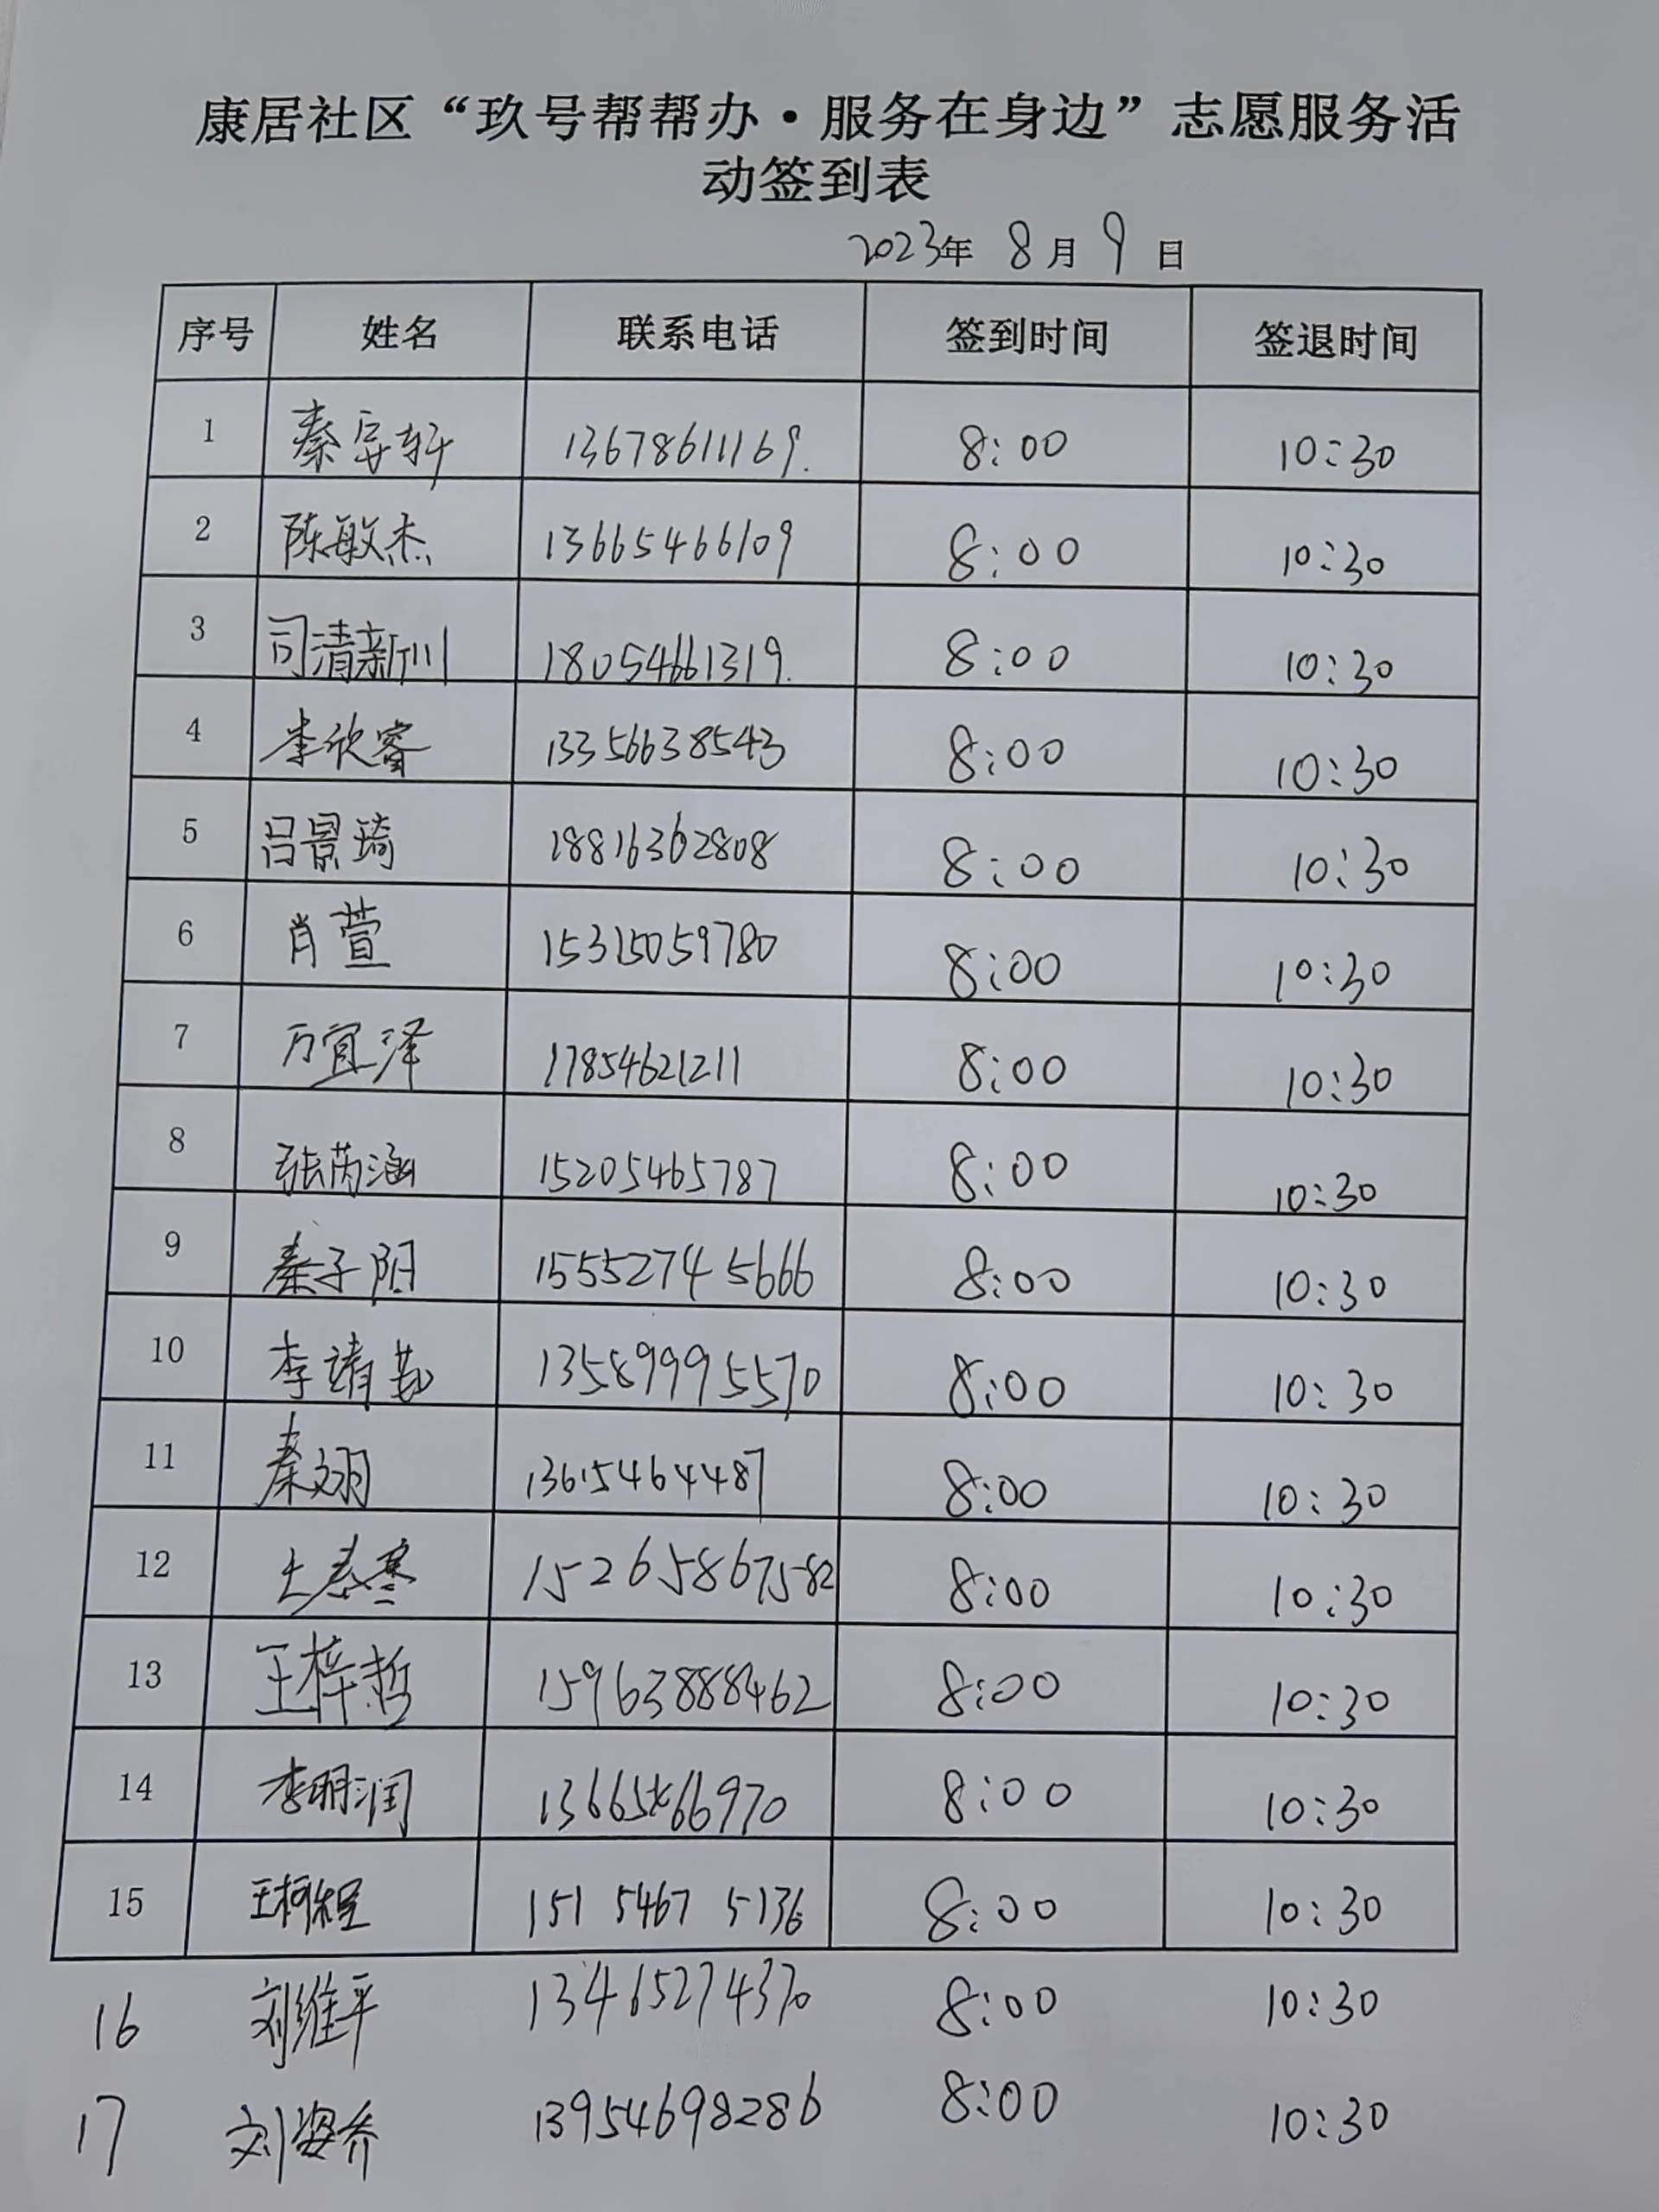 康居社区“玖号帮帮办·服务在身边”志愿服务活
动签到表
2023年 8月 9日
序号 姓名 联系电话 签到时间 签退时间
1 秦 轩 13678611169. 8:00 10:30
2 陈敏杰 13665466109 8:00 10:30
3 司清新川 18054661319. 8:00 10:30
4 李欣睿 13356638543 8:00 10:30
5 吕景琦 18816362808 8:00 10:30
6 肖萱 15315059780 8:00 10:30
7 万宜泽 17854621211 8:00 10:30
8 张芮涵 15205465787 8:00 10:30
9 秦子阳 15552745666 8:00 10:30
10 李靖 13589995570 8:00 10:30
11 秦翊 13615464487 8:00 10:30
12 15265867582 8:00 10:30
13 王梓哲 15963888462 8:00 10:30
14 李明润 8:00 10:30
15 王柯程 151 5467 5136 8:00 10:30
16 刘维平 13465274370 8:00 10:30
17 刘姿乔 13954698286 8:00 10:30